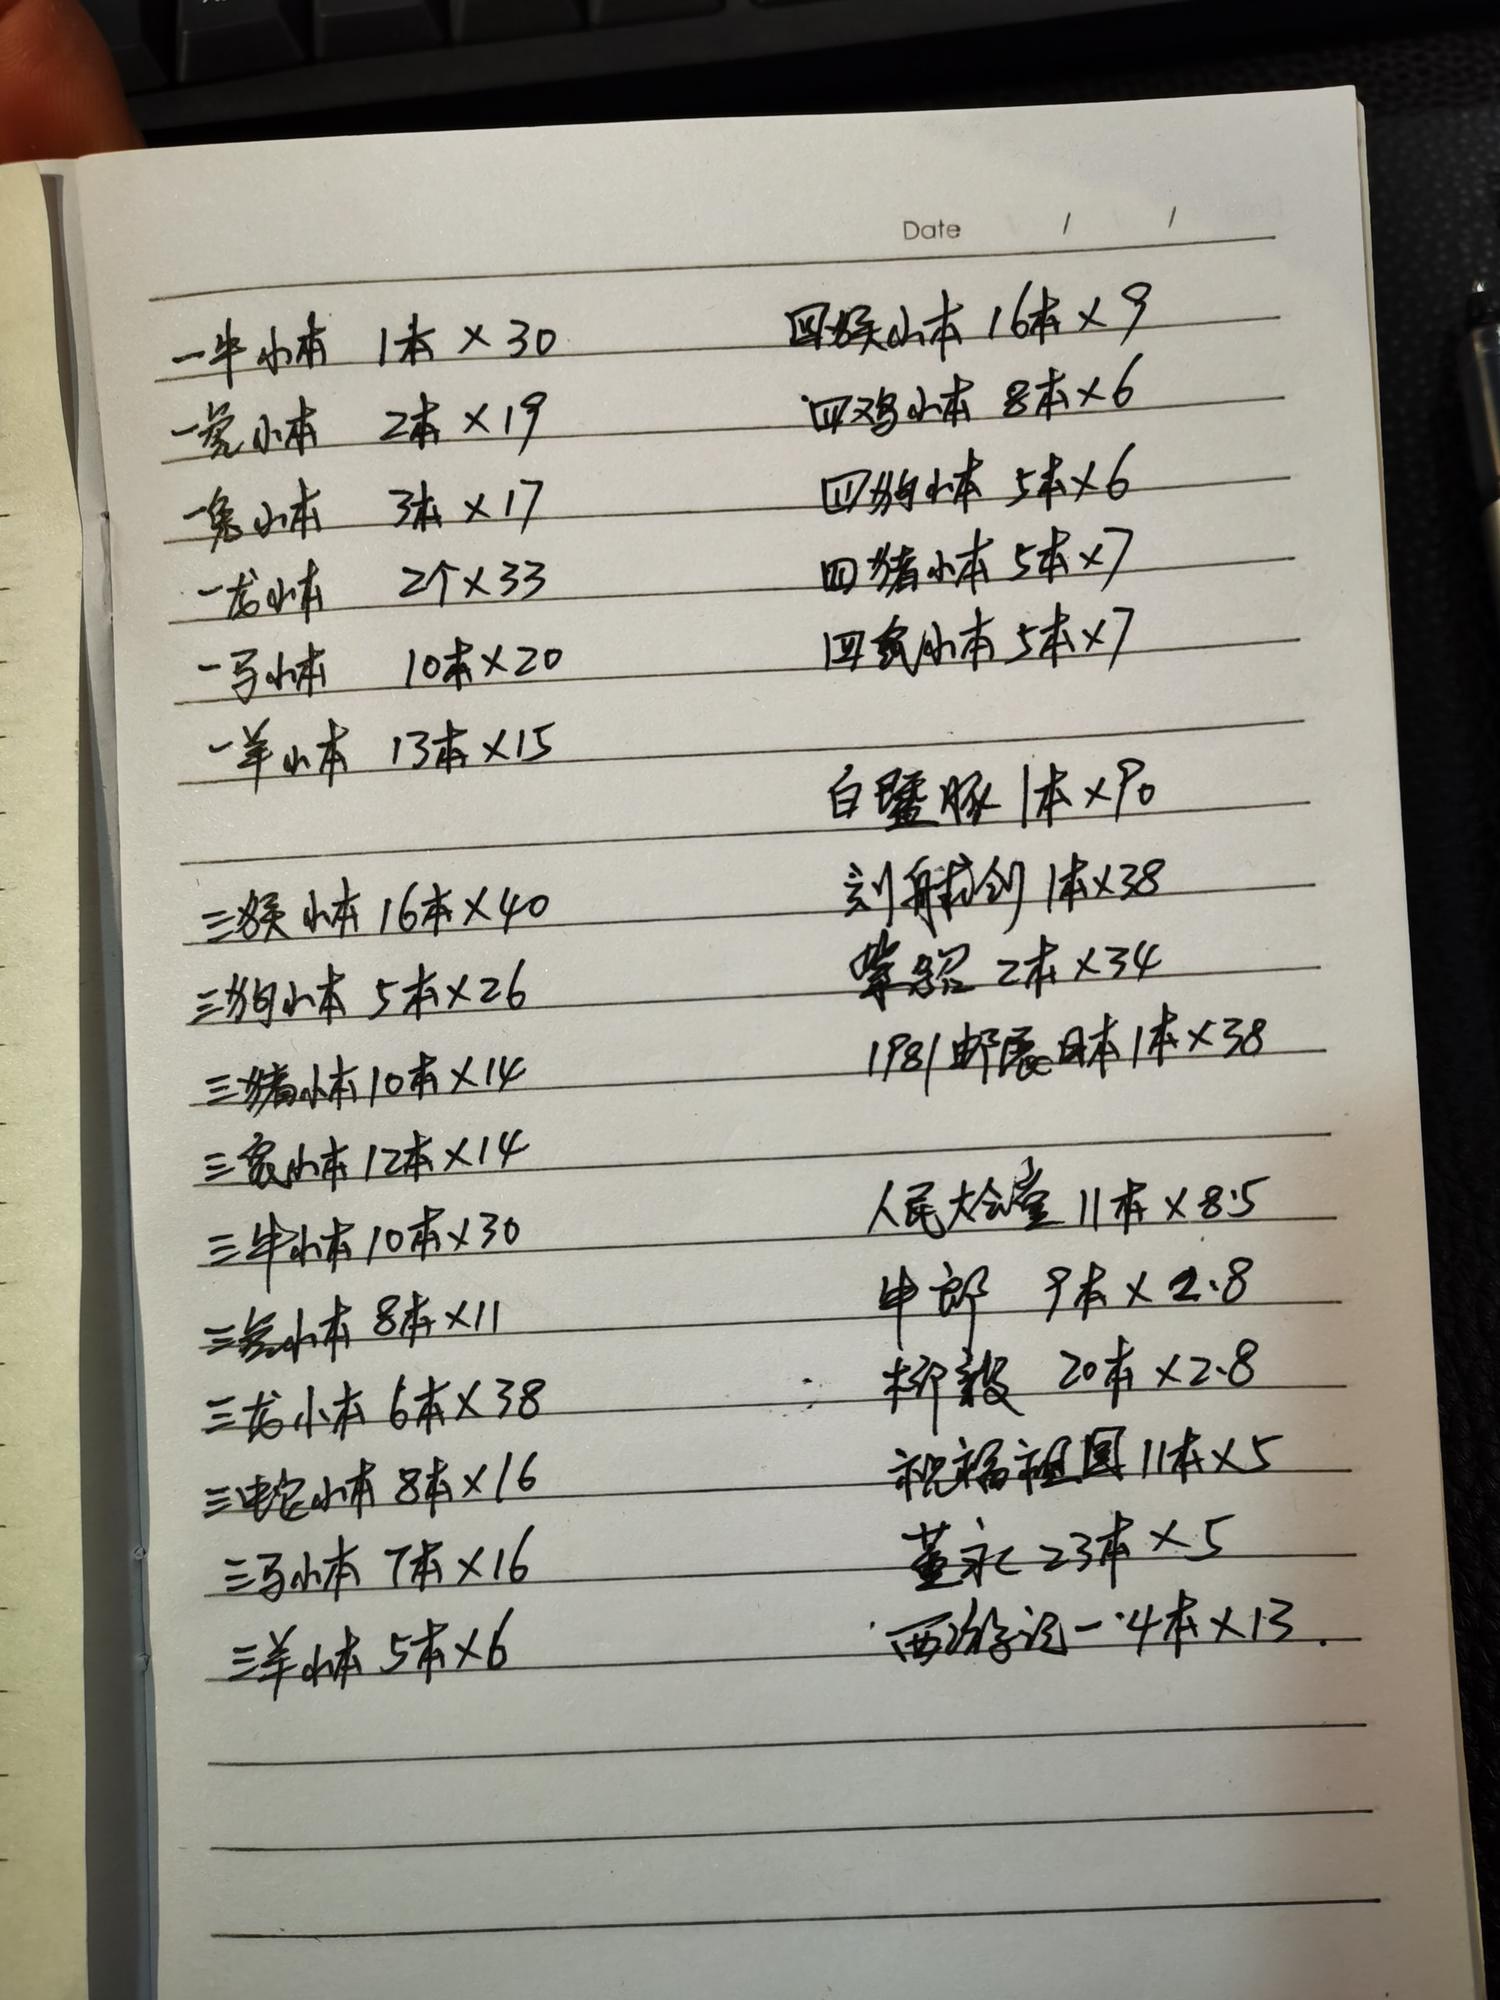 Date / /
一牛小本 1本×30
一虎小本 2本×19
一兔小本 3本×17
一龙小本 2个×33
一马小本 10本×20
一羊小本 13本×15
三猴小本 16本×40
三狗小本 5本×26
三猪小本 10本×14
三鼠小本 12本×14
三牛小本 10本×30
三兔小本 8本×11
三龙小本 6本×38
三蛇小本 8本×16
三马小本 7本×16
三羊小本 5本×6
四猴小本 16本×9
四鸡小本 8本×6
四狗小本 5本×6
四猪小本 5本×7
四鼠小本 5本×7
白暨豚 1本×90
刻舟求剑 1本×38
紫貂 2本×34
1981邮展日本 1本×38
人民大会堂 11本×8.5
牛郎 9本×2.8
柳毅 20本×2.8
祝福祖国 11本×5
董永 23本×5
西游记一 4本×13